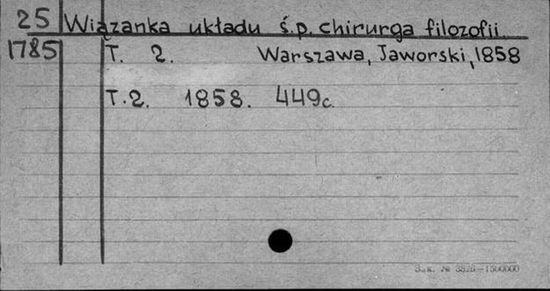 25 Wiązanka układu ś.p. chirurga filozofii
1785 T. 2. Warszawa, Jaworski, 1858
T. 2. 1858. 449c.